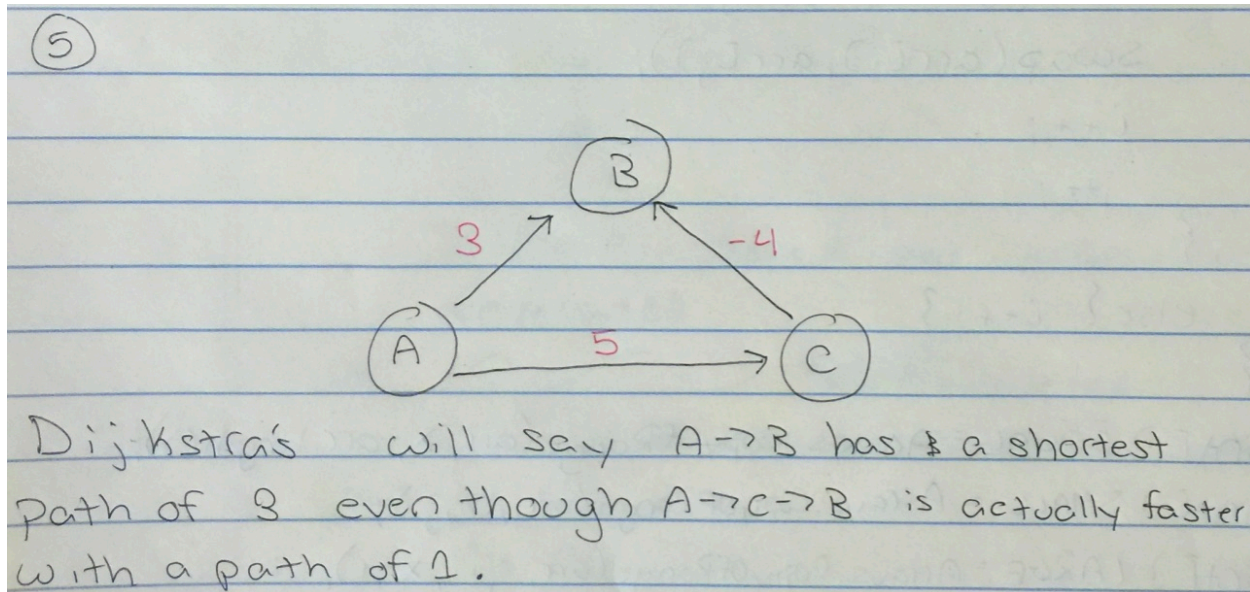 5
B
3
-4
A
5
C
Dijkstra's will say A->B has a shortest
path of 3 even though A->C->B is actually faster
with a path of 1.